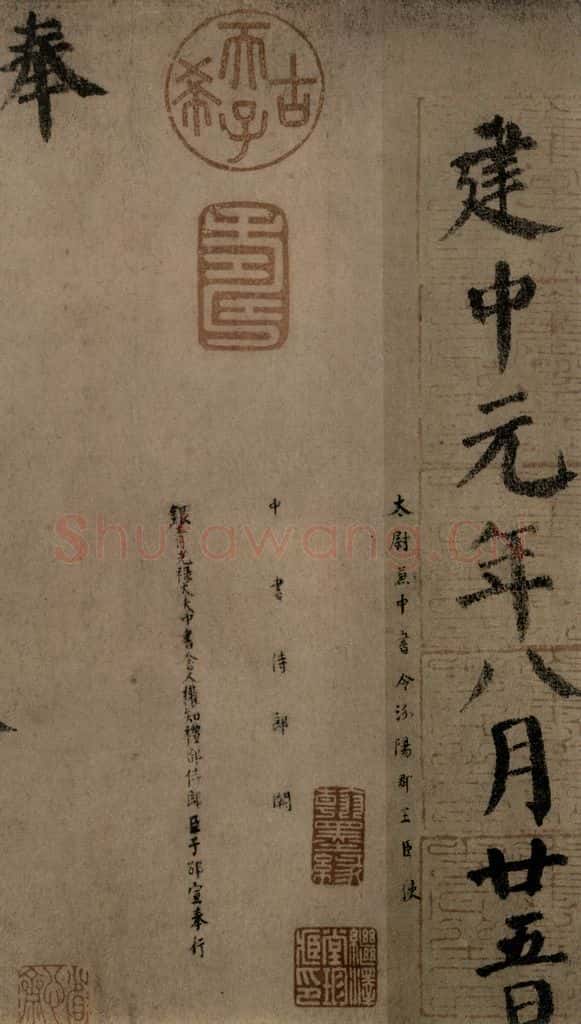 建中元年八月廿五日
太尉兼中書令汾陽郡王臣使
中書侍郎闕
銀青光祿大夫中書舍人權知禮部侍郎臣于邵宣奉行
奉
古希天子
壽
Shufawang.CN